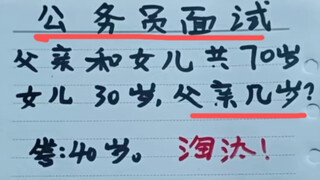 公务员面试
父亲和女儿共70岁
女儿30岁,父亲几岁?
答:40岁。 淘汰!